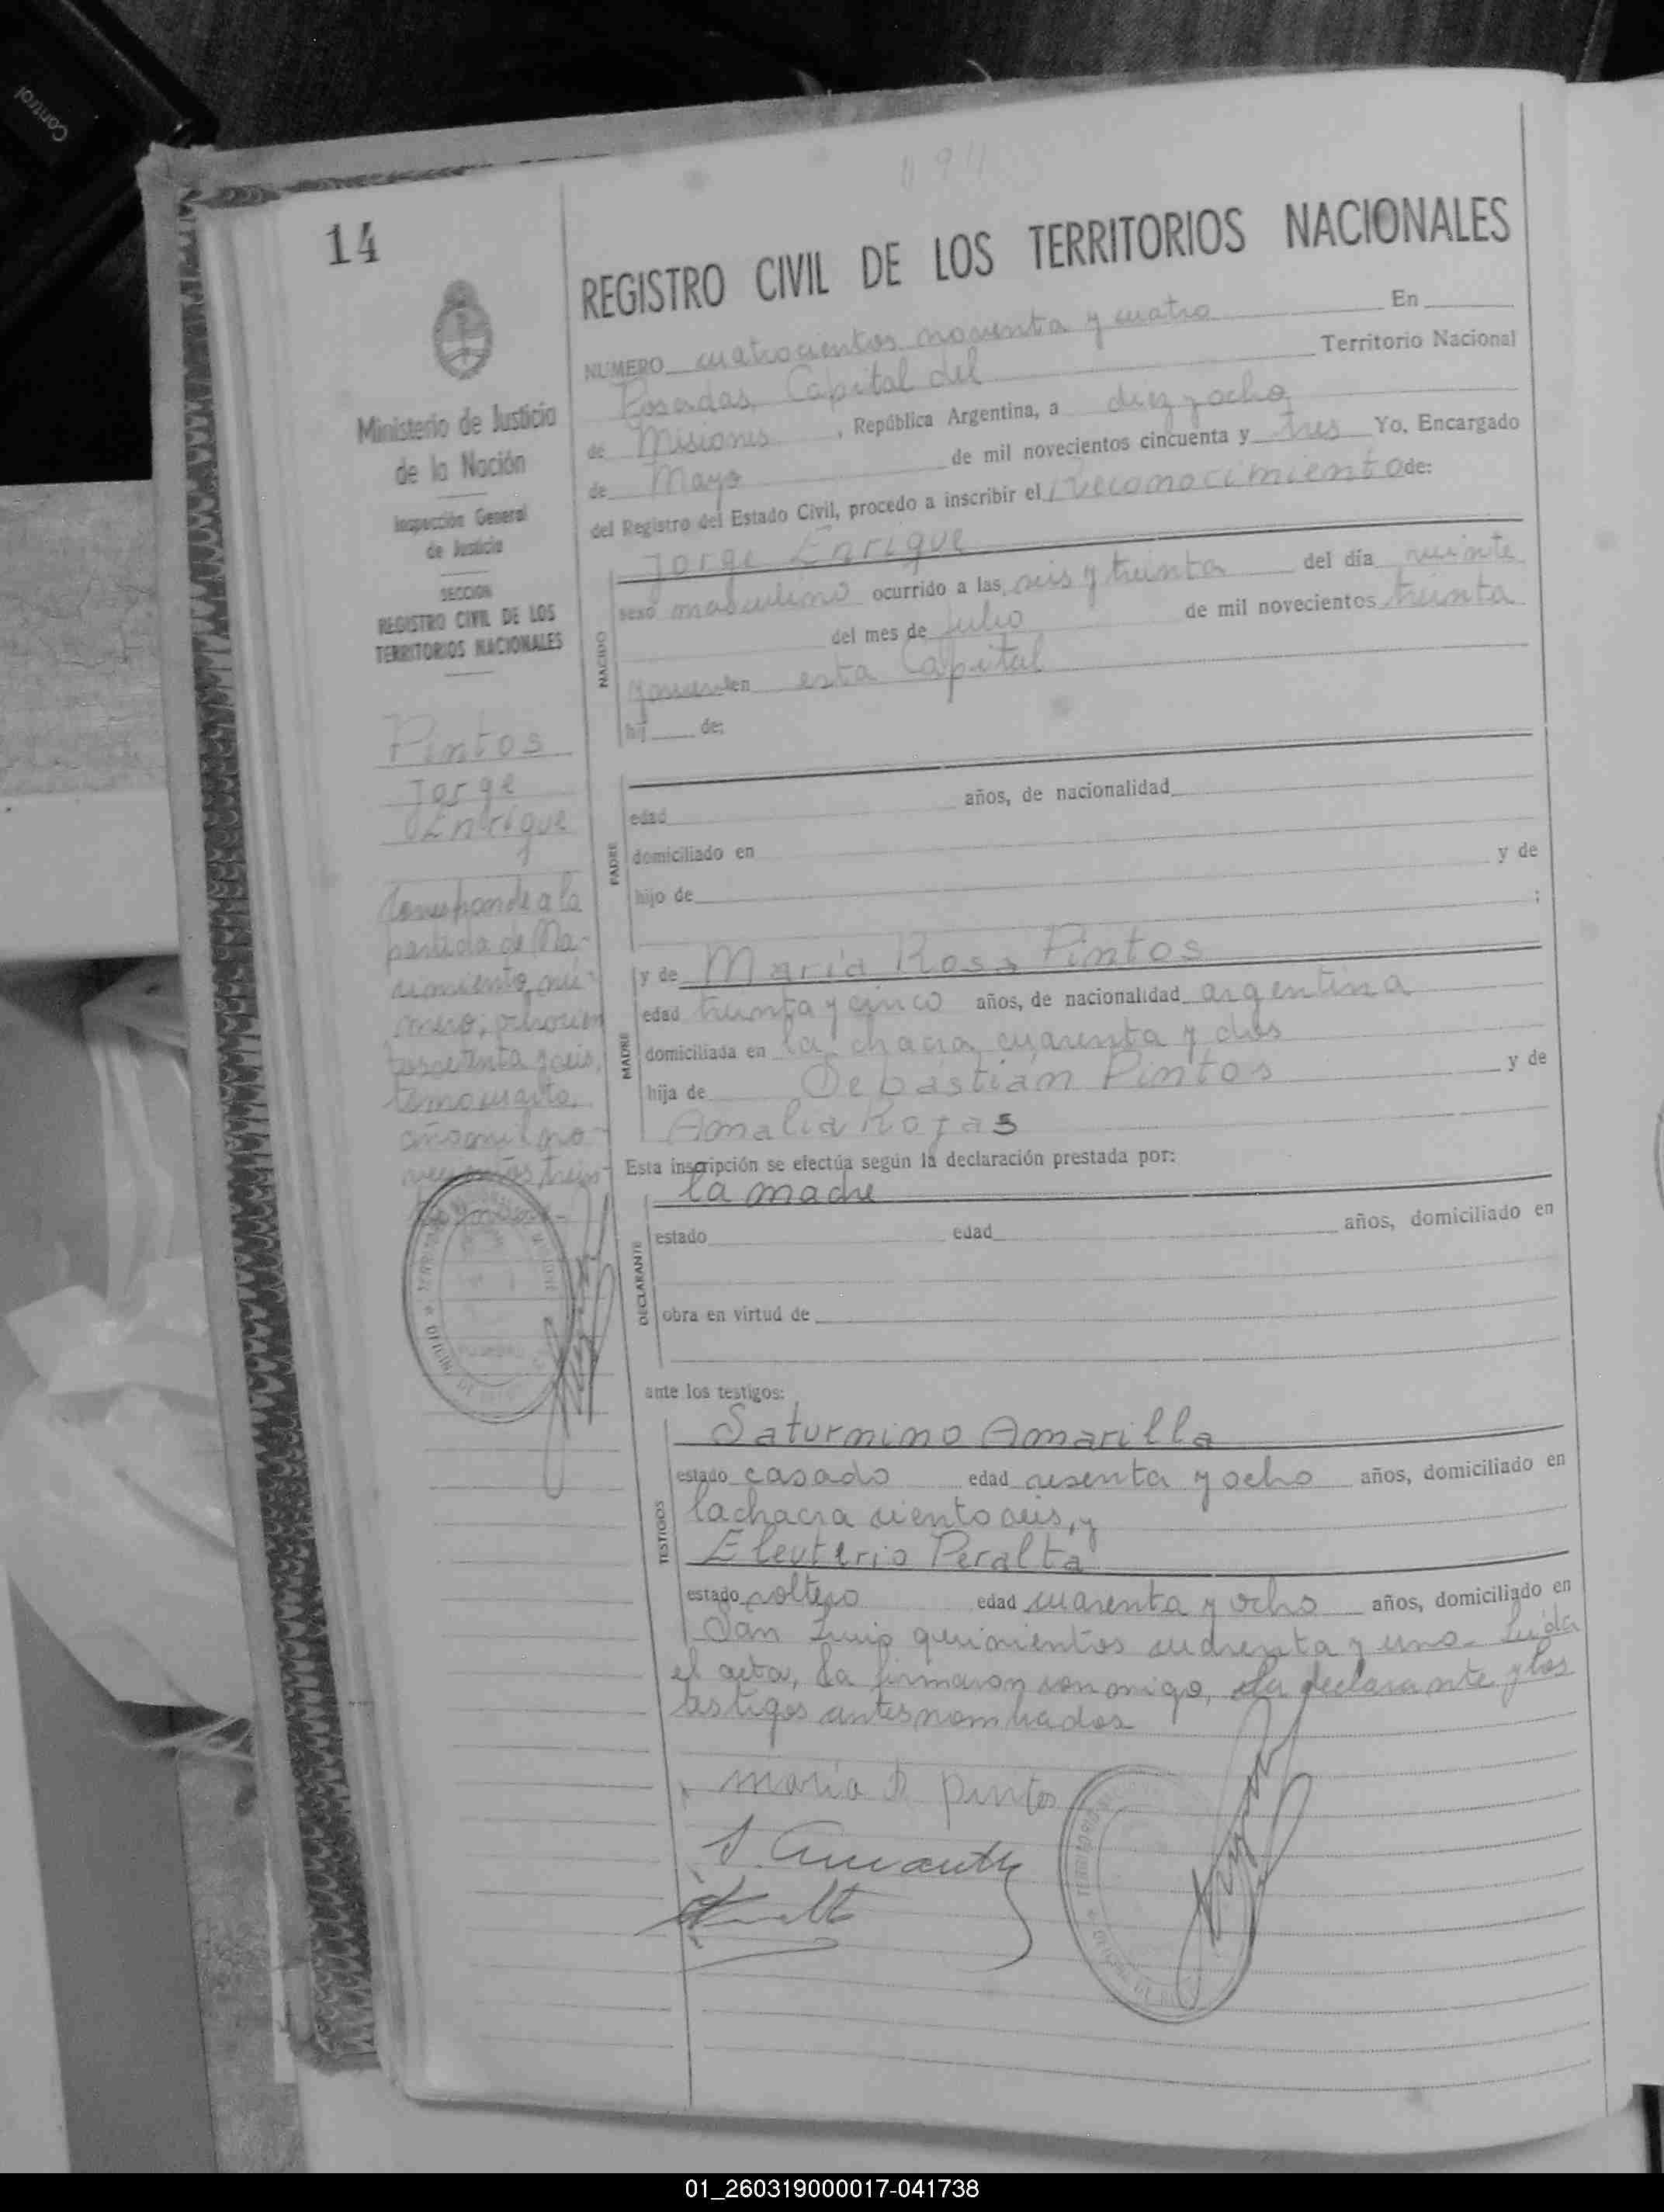 Control
14
Ministerio de Justicia
de la Nación
Inspección General
de Justicia
SECCION
REGISTRO CIVIL DE LOS
TERRITORIOS NACIONALES
Pintos
Jorge
Enrique
Corresponde a la
partida de Na-
cimiento, nú-
mero,
y seis,
tomo cuarto,
año mil no-
vecientos trein-
REGISTRO CIVIL DE LOS TERRITORIOS NACIONALES
NUMERO cuatrocientos noventa y cuatro En
Posadas, Capital del Territorio Nacional
de Misiones, República Argentina, a diez y ocho
de Mayo de mil novecientos cincuenta y tres Yo, Encargado
del Registro del Estado Civil, procedo a inscribir el reconocimiento de:
Jorge Enrique
NACIDO
sexo masculino ocurrido a las seis y treinta del día veinte
del mes de Julio de mil novecientos treinta
y nueve en esta Capital
hij de:
PADRE
edad años, de nacionalidad
domiciliado en
hijo de y de
;
MADRE
y de María Rosa Pintos
edad treinta y cinco años, de nacionalidad argentina
domiciliada en la chacra cuarenta y dos
hija de Sebastián Pintos y de
Amalia Rojas
Esta inscripción se efectúa según la declaración prestada por:
la madre
DECLARANTE
estado edad años, domiciliado en
obra en virtud de
ante los testigos:
TESTIGOS
Saturnino Amarilla
estado casado edad sesenta y ocho años, domiciliado en
la chacra ciento seis, y
Eleuterio Peralta
estado soltero edad cuarenta y ocho años, domiciliado en
San Luis quinientos cuarenta y uno. Leída
el acta, la firmaron conmigo, la declarante y los
testigos antes nombrados
maria R pintos
01_260319000017-041738